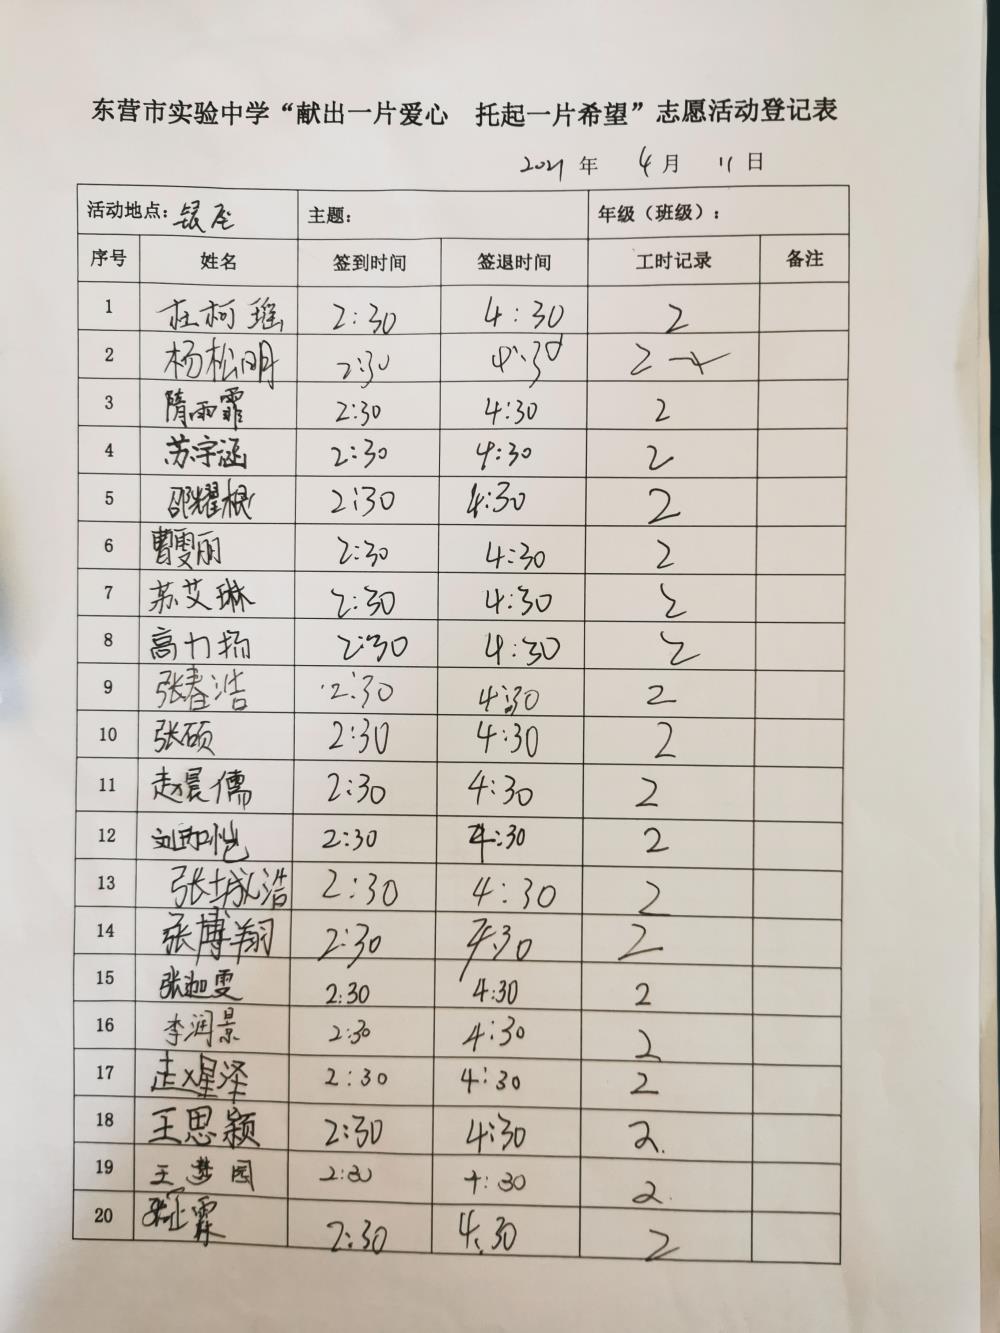 东营市实验中学“献出一片爱心 托起一片希望”志愿活动登记表
2021年 4月 11日
活动地点: 银座 主题: 年级（班级）:
序号 姓名 签到时间 签退时间 工时记录 备注
1 杜柯瑶 2:30 4:30 2
2 杨松明 2:30 4:30 2
3 隋雨霏 2:30 4:30 2
4 苏宇涵 2:30 4:30 2
5 邵耀根 2:30 4:30 2
6 曹雯丽 2:30 4:30 2
7 苏艾琳 2:30 4:30 2
8 高力扬 2:30 4:30 2
9 张春浩 2:30 4:30 2
10 张硕 2:30 4:30 2
11 赵晨儒 2:30 4:30 2
12 2:30 4:30 2
13 张城浩 2:30 4:30 2
14 张博翔 2:30 4:30 2
15 张迦雯 2:30 4:30 2
16 李润景 2:30 4:30 2
17 赵星泽 2:30 4:30 2
18 王思颖 2:30 4:30 2
19 王梦园 2:30 4:30 2
20 2:30 4:30 2